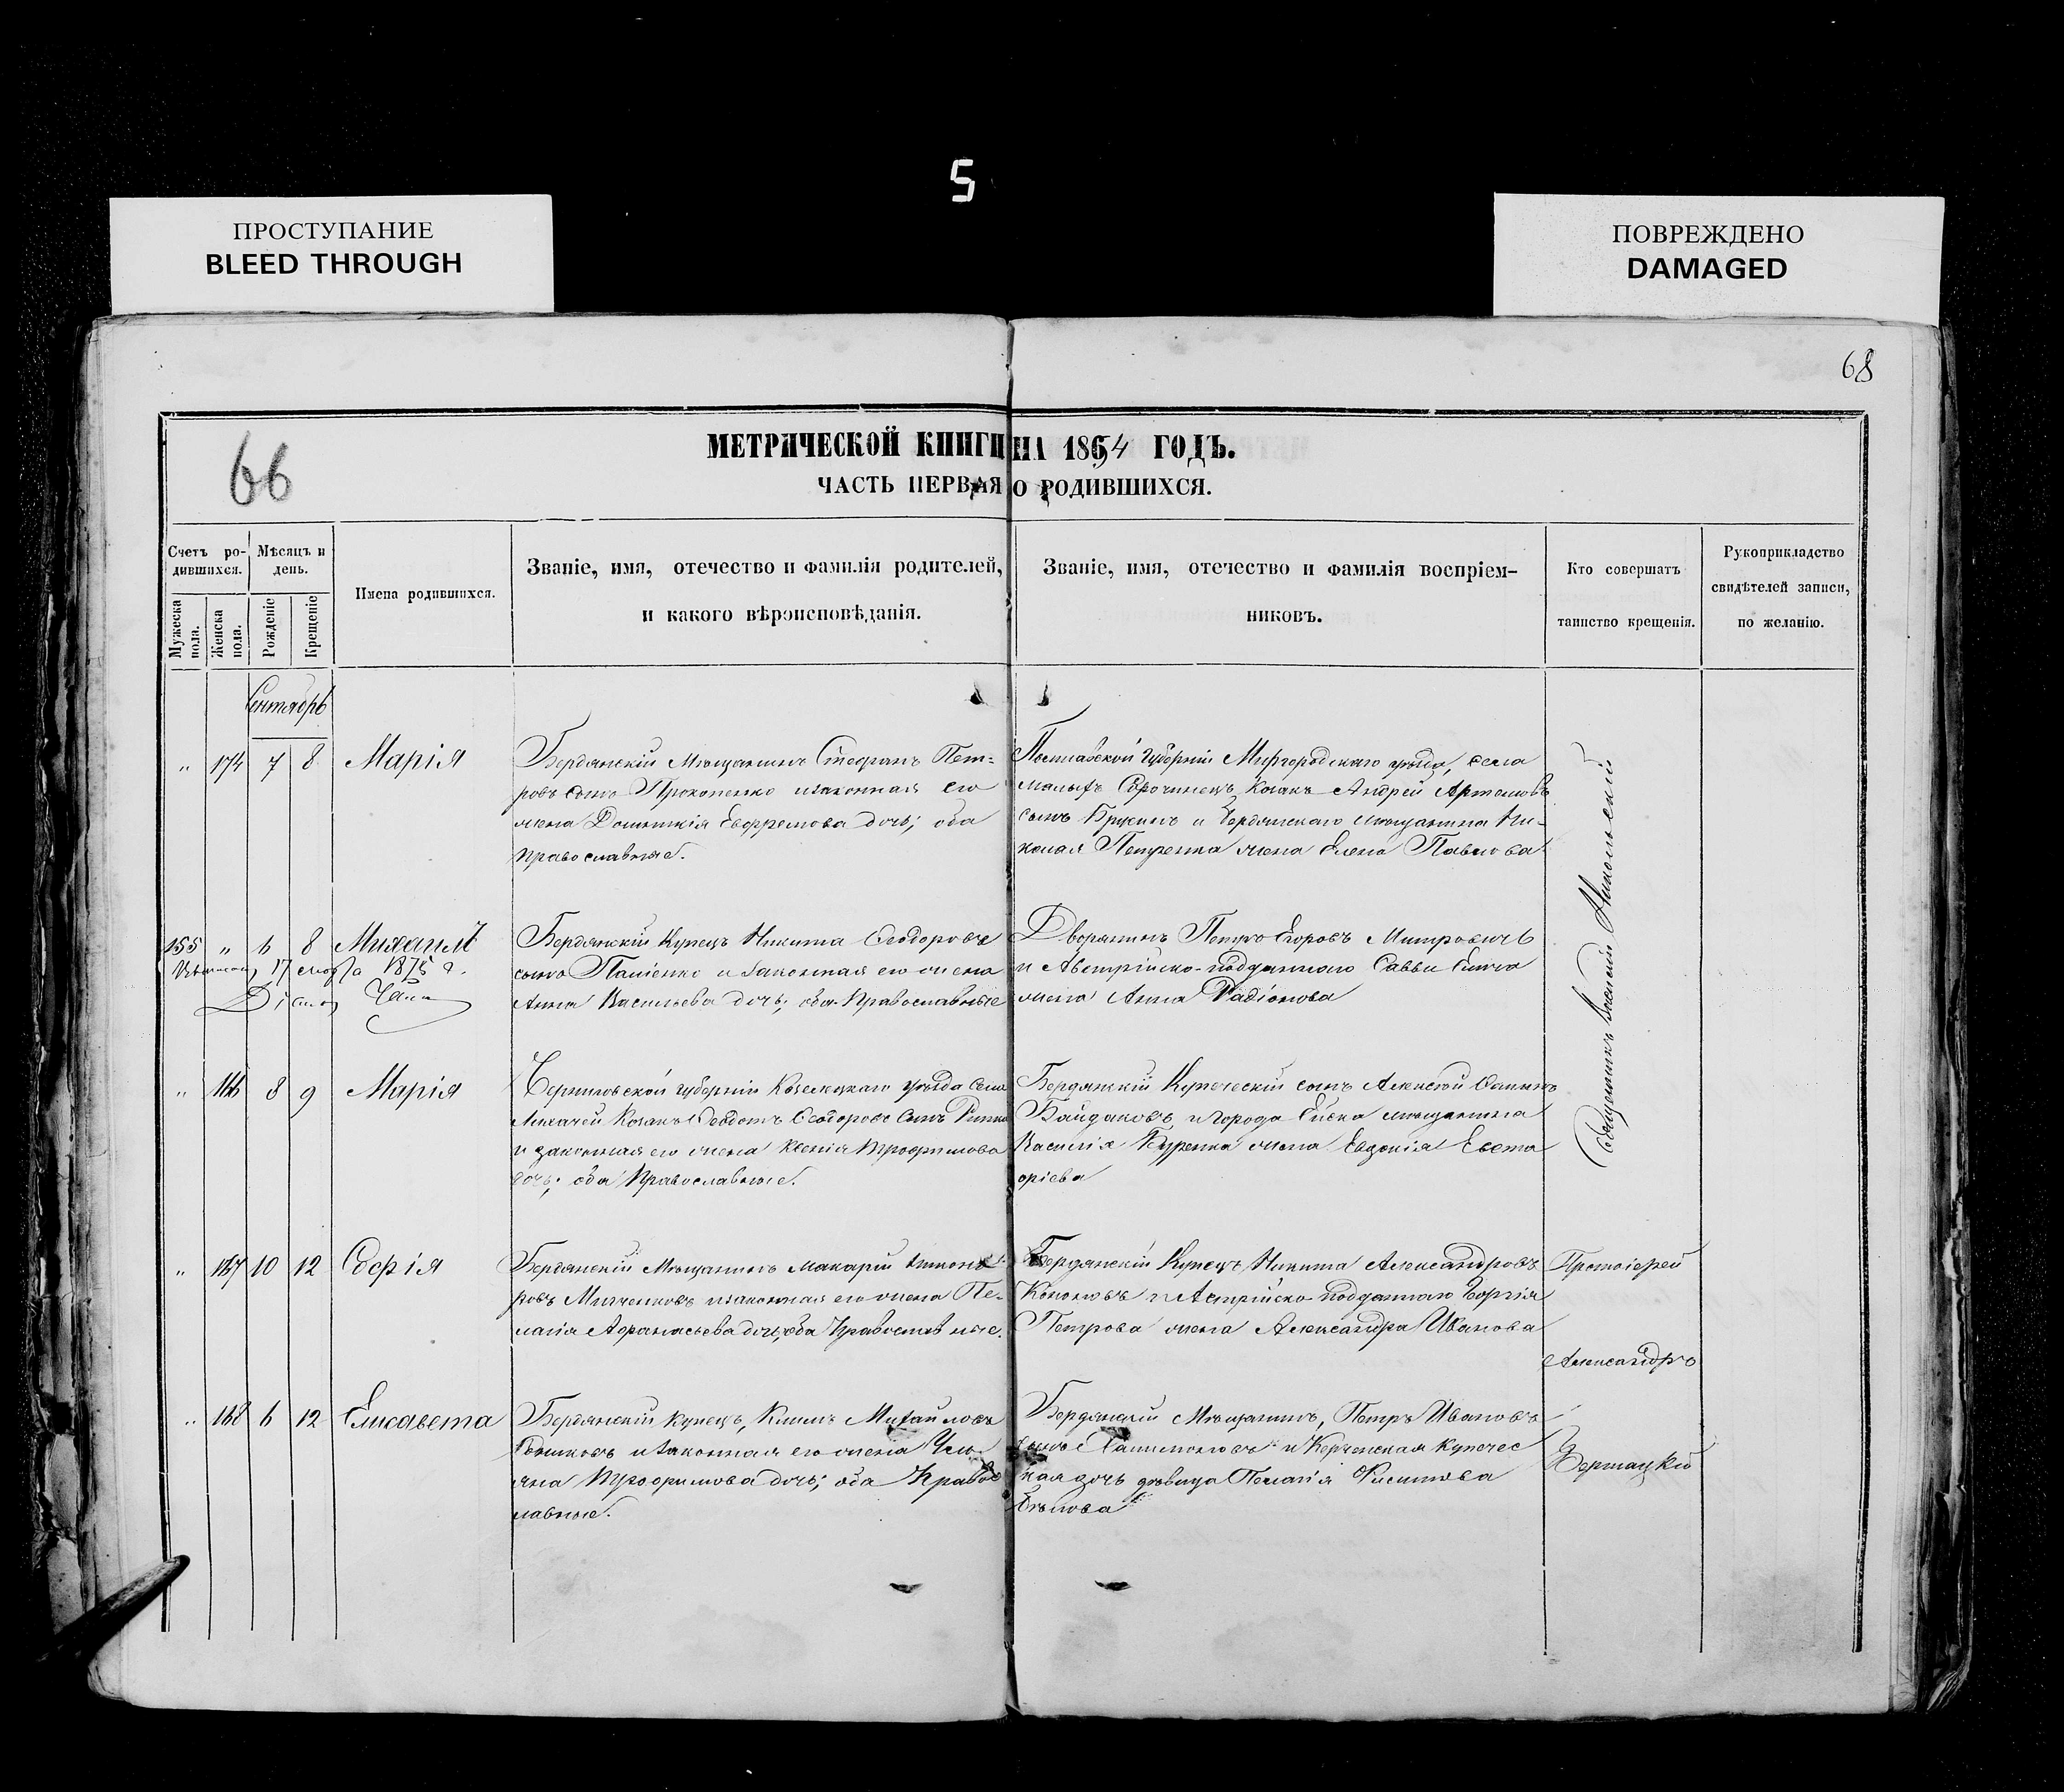 5
ПРОСТУПАНИЕ
BLEED THROUGH
ПОВРЕЖДЕНО
DAMAGED
68
66
МЕТРИЧЕСКОЙ КНИГИ НА 1854 ГОДЪ.
ЧАСТЬ ПЕРВАЯ О РОДИВШИХСЯ.
Счетъ ро-
дившихся.
Мужеска
пола.
Женска
пола.
Мѣсяцъ и
день.
Рожденіе
Крещеніе
Имена родившихся.
Званіе, имя, отечество и фамилія родителей,
и какого вѣроисповѣданія.
Званіе, имя, отечество и фамилія воспріем-
никовъ.
Кто совершатъ
таинство крещенія.
Рукоприкладство
свидѣтелей записи,
по желанію.
Сентябрь
" 174 7 8 Марія
Бердянскій Мѣщанинъ Стефанъ Пет-
ровъ сынъ Прокопенко и законная его
жена Домникія Евфремова дочь; оба
православные.
Полтавской губерніи Миргородскаго уѣзда, села
малыхъ Сорочинецъ Козакъ Андрей Артемовъ
сынъ и Бердянскаго мѣщанина Ни-
колая Петренка жена Елена Павлова
155 " 6 8 Михаилъ
17 1875 г.
Бердянскій Купецъ Никита Ѳеодоровъ
сынъ Паліенко и законная его жена
Анна Васильева дочь; оба Православные
Дворянинъ Петръ Егоровъ Митровичъ
и Австрійско-подданнаго Саввы
жена Анна Радіонова
" 166 8 9 Марія
Черниговской губерніи Козелецкаго уѣзда села
Козакъ Ѳеодотъ Ѳеодоровъ сынъ
и законная его жена Ксенія Трофимова
дочь; оба Православные.
Бердянскій Купеческій сынъ Алексѣй
Байдаковъ, и города Ейска мѣщанина
Василія Куренка жена Евдокія Евста
фіева
Священникъ Василій Никольскій
" 167 10 12 Софія
Бердянскій Мѣщанинъ Макарій
ровъ и законная его жена Пе-
лагія Афанасьева дочь, оба Православные.
Бердянскій Купецъ Никита Александровъ
Кононовъ и Австрійско-подданнаго Георгія
Петрова жена Александра Иванова
Протоіерей
Александръ
" 168 6 12 Елисавета
Бердянскій купецъ, Климъ Михайловъ
и законная его жена Улі-
яна Трофимова дочь; оба Правос
лавные.
Бердянскій Мѣщанинъ, Петръ Ивановъ
сынъ и Керченская купечес
кая дочь дѣвица Пелагія
Бѣлова